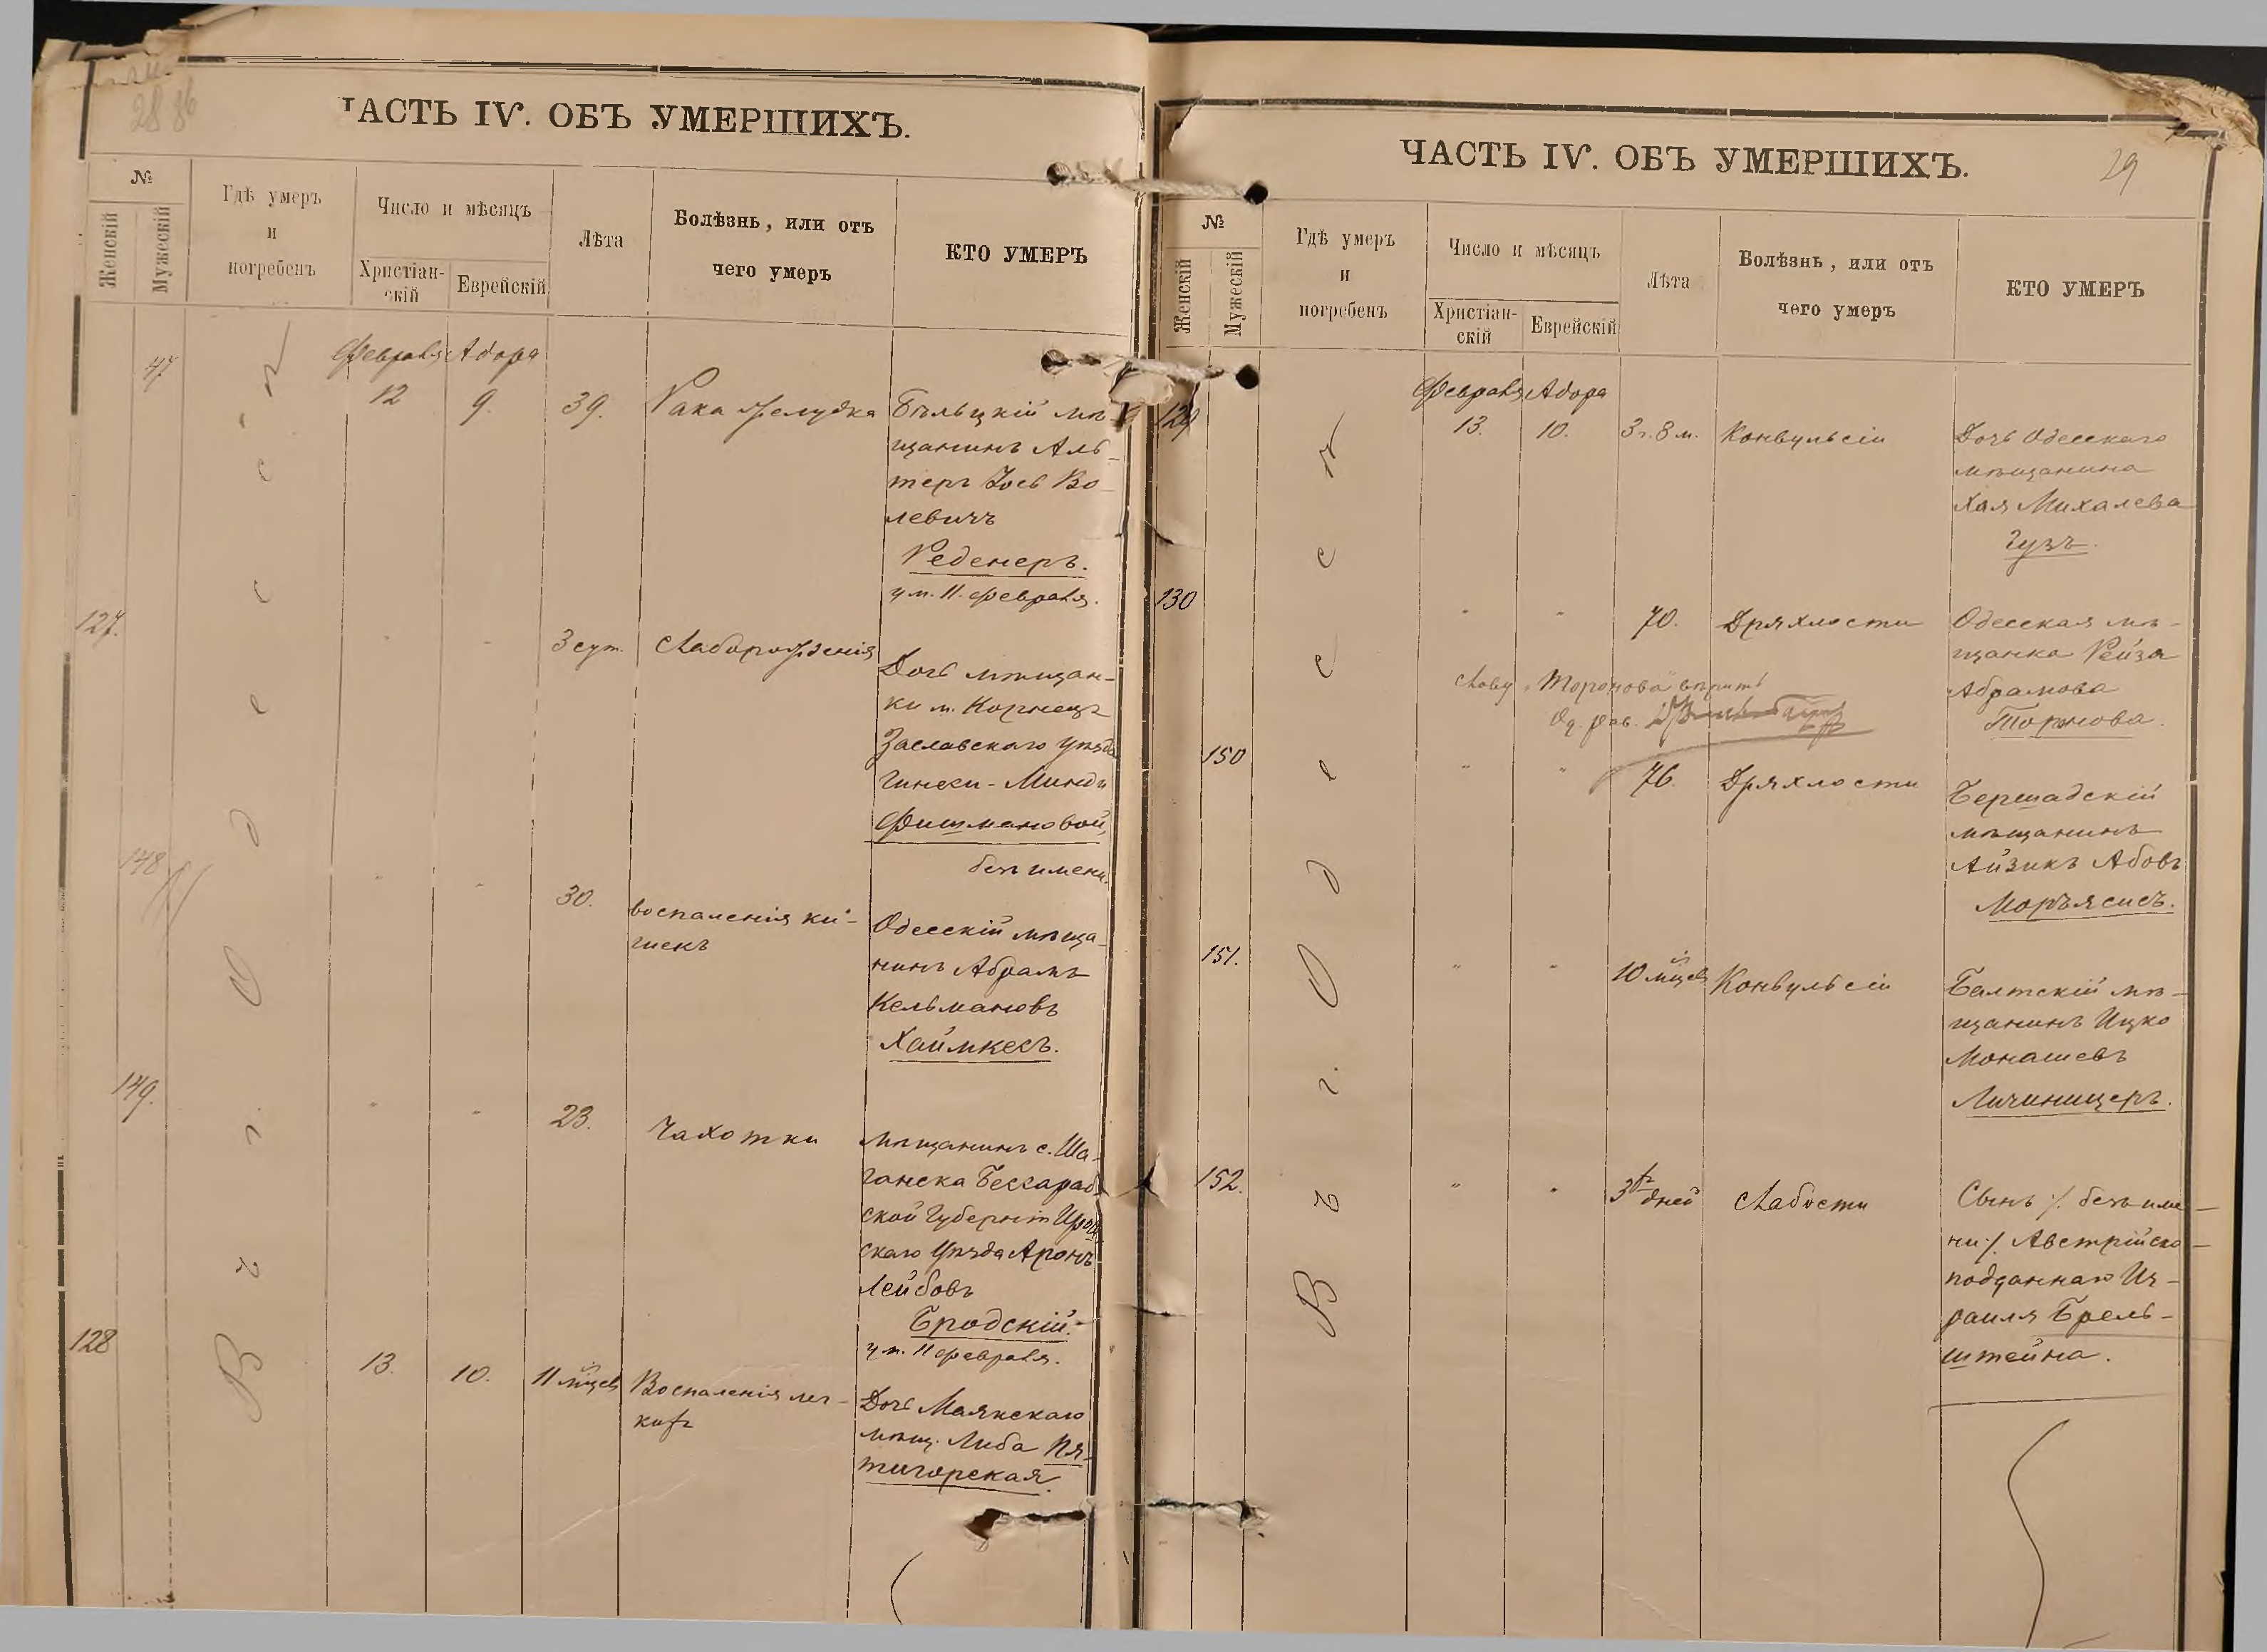 28 86
ЧАСТЬ IV. ОБЪ УМЕРШИХЪ.
№
Женскій
Мужескій
Гдѣ умеръ
и
погребенъ
Число и мѣсяцъ
Христіан-
скій
Еврейскій
Лѣта
Болѣзнь, или отъ
чего умеръ
КТО УМЕРЪ
В г. Одессѣ
Февраля Адора
47 12 9. 39. Рака желудка Бѣльцкій мѣ-
щанинъ Аль-
теръ Іось Во-
левичъ
Реденеръ.
ум. 11. февраля.
127. " " 3 сут. Слаборожденія Дочь мѣщан-
ки м. Корнецъ
Заславскаго уѣзда
Гинеси-Минди
Фишмановой,
безъ имени.
148 " " 30. воспаленія ки-
шекъ
Одесскій мѣща-
нинъ Абрамъ
Кельмановъ
Хаймкесъ.
149. " " 23. Чахотки мѣщанинъ с. Ша-
ганска Бессараб-
ской Губерніи
скаго уѣзда Аронъ
Лейбовъ
Бродскій.
ум. 11 февраля.
128 13. 10. 11 мѣцевъ Воспаленія лег-
кихъ
Дочь Маякскаго
мѣщ. Либа Пя-
тигорская.
29
ЧАСТЬ IV. ОБЪ УМЕРШИХЪ.
№
Женскій
Мужескій
Гдѣ умеръ
и
погребенъ
Число и мѣсяцъ
Христіан-
скій
Еврейскій
Лѣта
Болѣзнь, или отъ
чего умеръ
КТО УМЕРЪ
В г. Одессѣ
Февраля Адора
129 13. 10. 3 г. 8 м. Конвульсіи Дочь Одесскаго
мѣщанина
Хая Михалева
Гузъ.
130 " " 70. Дряхлости Одесская мѣ-
щанка Рейза
Абрамова
Торонова.
Слову „Торонова" вѣрить
Од. рав.
150 " " 76. Дряхлости Бершадскій
мѣщанинъ
Айзикъ Абовъ
Моръясисъ.
151. " " 10 мѣцевъ Конвульсіи Балтскій мѣ-
щанинъ Ицко
Монашевъ
Личиницеръ.
152. " " 3хъ дней Слабости Сынъ /. безъ име-
ни /. Австрійско-
подданнаго Из-
раиля Брель-
штейна.